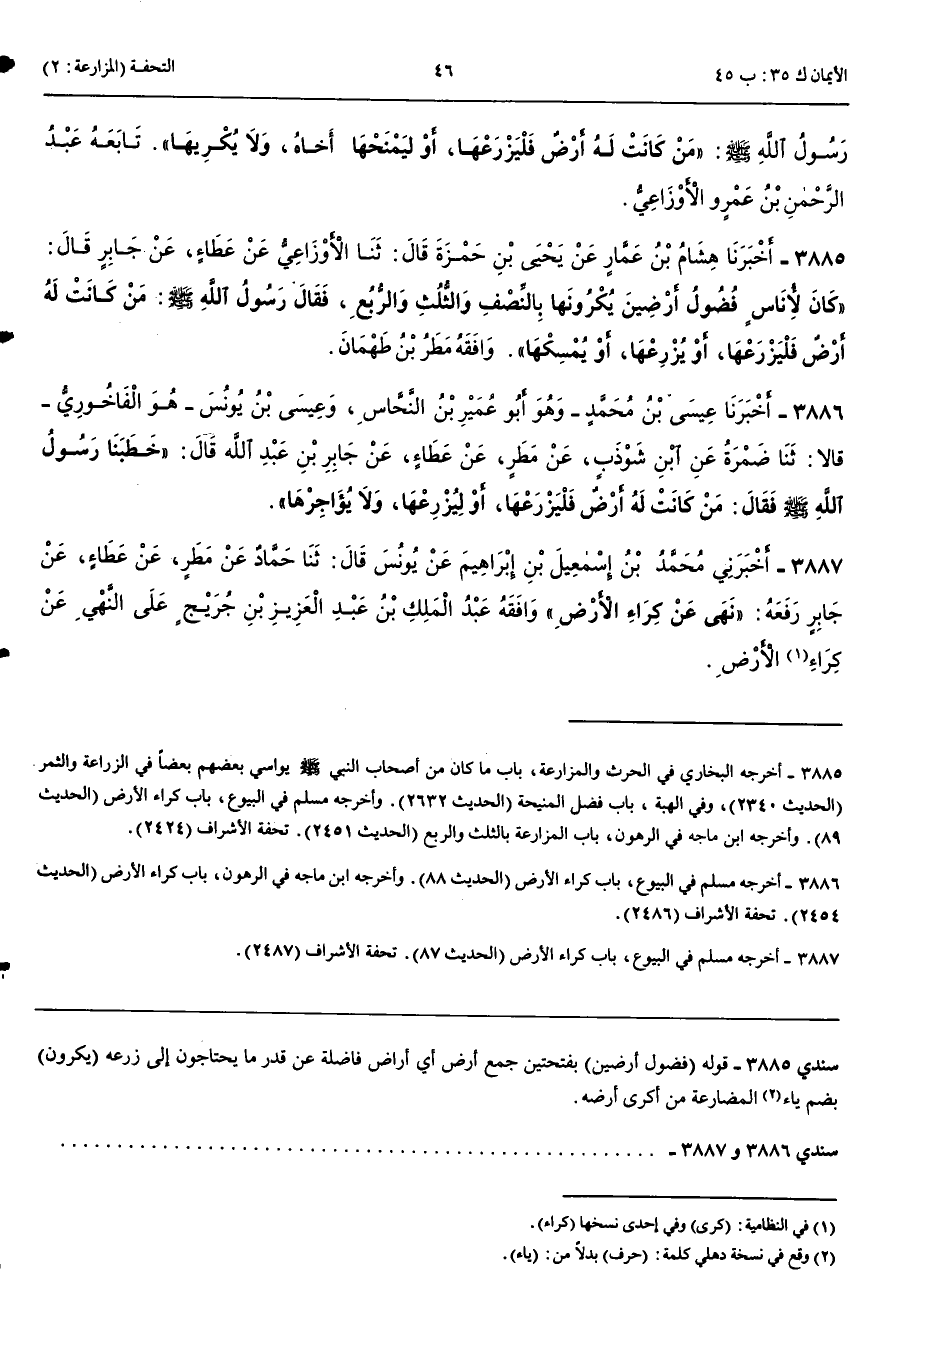 الأيمان ك ٣٥: ب ٤٥
٤٦
التحفـة (المزارعة: ٢)
رَسُـولُ ٱللَّهِ ﷺ: «مَنْ كَانَتْ لَـهُ أَرْضٌ فَلْيَزْرَعْهَـا، أَوْ لِيَمْنَحْهَا أَخـاهُ، وَلَا يُكْـرِيهَـا». تَـابَعَـهُ عَبْـدُ
الرَّحْمٰنِ بْنُ عَمْرٍو الْأَوْزَاعِيُّ.
٣٨٨٥ ـ أَخْبَرَنَا هِشَامُ بْنُ عَمَّارٍ عَنْ يَحْيَى بْنِ حَمْـزَةَ قَالَ: ثَنَـا الْأَوْزَاعِيُّ عَنْ عَطَاءٍ، عَنْ جَـابِرٍ قَـالَ:
«كَانَ لِأُنَاسٍ فُضُولُ أَرْضِينَ يُكْرُونَها بِالنِّصْفِ وَالثُّلُثِ وَالرُّبُعِ، فَقَالَ رَسُولُ اللَّهِ ﷺ: مَنْ كَـانَتْ لَهُ
أَرْضٌ فَلْيَزْرَعْهَا، أَوْ يُزْرِعْهَا، أَوْ يُمْسِكْهَا». وَافَقَهُ مَطَرُ بْنُ طَهْمَانَ.
٣٨٨٦ ـ أَخْبَرَنَا عِيسَى بْنُ مُحَمَّدٍ ـ وَهُوَ أَبُو عُمَيْرِ بْنُ النَّحَّاسِ، وَعِيسَى بْنُ يُونُسَ ـ هُـوَ الْفَاخُـورِيُّ ـ
قالا: ثَنَا ضَمْرَةُ عَنِ ٱبْنِ شَوْذَبٍ، عَنْ مَطَرٍ، عَنْ عَطَاءٍ، عَنْ جَابِرِ بْنِ عَبْدِ اللَّه قَالَ: «خَـطَبَنَا رَسُـولُ
ٱللَّهِ ﷺ فَقَالَ: مَنْ كَانَتْ لَهُ أَرْضٌ فَلْيَزْرَعْهَا، أَوْ لِيُزْرِعْهَا، وَلَا يُؤَاجِرْهَا».
٣٨٨٧ ـ أَخْبَرَنِي مُحَمَّدُ بْنُ إِسْمٰعِيلَ بْنِ إِبْرَاهِيمَ عَنْ يُونُسَ قَالَ: ثَنَا حَمَّادٌ عَنْ مَطَرٍ، عَنْ عَطَاءٍ، عَنْ
جَابِرٍ رَفَعَهُ: «نَهَى عَنْ كِرَاءِ الْأَرْضِ» وَافَقَهُ عَبْدُ الْمَلِكِ بْنُ عَبْـدِ الْعَزِيـزِ بْنِ جُرَيْـجٍ عَلَى النَّهْيِ عَنْ
كِرَاءِ(١) الْأَرْضِ.
٣٨٨٥ ـ أخرجه البخاري في الحرث والمزارعة، باب ما كان من أصحاب النبي ﷺ يواسي بعضهم بعضاً في الزراعة والثمر
(الحديث ٢٣٤٠)، وفي الهبة، باب فضل المنيحة (الحديث ٢٦٣٢). وأخرجه مسلم في البيوع، باب كراء الأرض (الحديث
٨٩). وأخرجه ابن ماجه في الرهون، باب المزارعة بالثلث والربع (الحديث ٢٤٥١). تحفة الأشراف (٢٤٢٤).
٣٨٨٦ ـ أخرجه مسلم في البيوع، باب كراء الأرض (الحديث ٨٨). وأخرجه ابن ماجه في الرهون، باب كراء الأرض (الحديث
٢٤٥٤). تحفة الأشراف (٢٤٨٦).
٣٨٨٧ ـ أخرجه مسلم في البيوع، باب كراء الأرض (الحديث ٨٧). تحفة الأشراف (٢٤٨٧).
سندي ٣٨٨٥ ـ قوله (فضول أرضين) بفتحتين جمع أرض أي أراض فاضلة عن قدر ما يحتاجون إلى زرعه (يكرون)
بضم ياء(٢) المضارعة من أكرى أرضه.
سندي ٣٨٨٦ و ٣٨٨٧ ـ . . . . . . . . . . . . . . . . . . . . . . . . . . . . . . . . . . . . . . . . . . . . . . . . . . . .
(١) في النظامية: (كرى) وفي إحدى نسخها (كراء).
(٢) وقع في نسخة دهلي كلمة: (حرف) بدلاً من: (ياء).